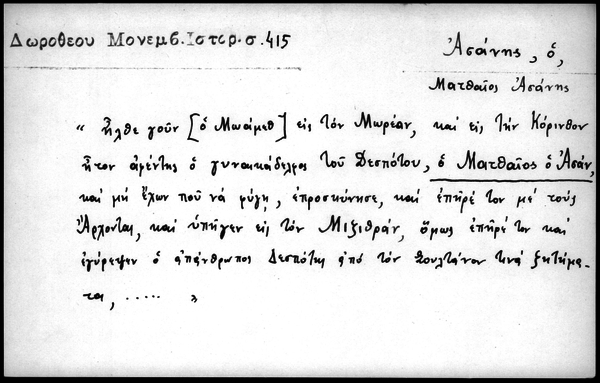 Δωροθεου Μονεμβ. Ιστορ. σ. 415
Ἀσάνης, ὁ,
Ματθαῖος Ἀσάνης
« ἦλθε γοῦν [ὁ Μωάμεθ] εἰς τὸν Μωρέαν, καὶ εἰς τὴν Κόρινθον
ἦτον ἀφέντης ὁ γυναικάδελφος τοῦ Δεσπότου, ὁ Ματθαῖος ὁ Ἀσάν,
καὶ μὴ ἔχων ποῦ νὰ φύγῃ, ἐπροσκύνησε, καὶ ἐπῆρέ τον μὲ τοὺς
Ἄρχοντας, καὶ ὑπῆγεν εἰς τὸν Μιζιθρᾶν, ὅμως ἐπῆρέ τον καὶ
ἐγύρεψεν ὁ ἀπάνθρωπος Δεσπότης ἀπὸ τὸν Σουλτάνον τινὰ ζητήμα-
τα, ..... »